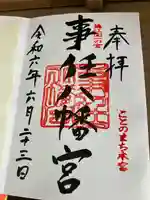 奉拝
遠江國一宮
事任八幡宮
ことのまち本宮
令和六年六月二十三日